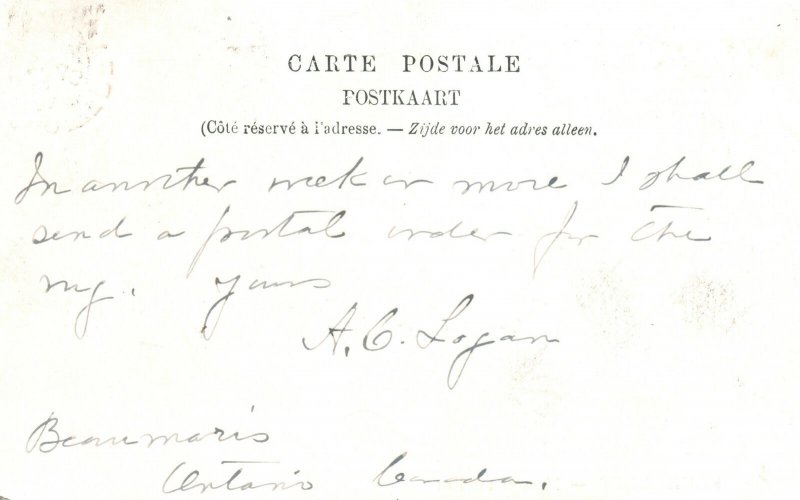 CARTE POSTALE
POSTKAART
(Côté réservé à l'adresse. — Zijde voor het adres alleen.
In another week or more I shall
send a postal order for the
rug. Yours
A. C. Logan
Beaumaris
Ontario Canada.